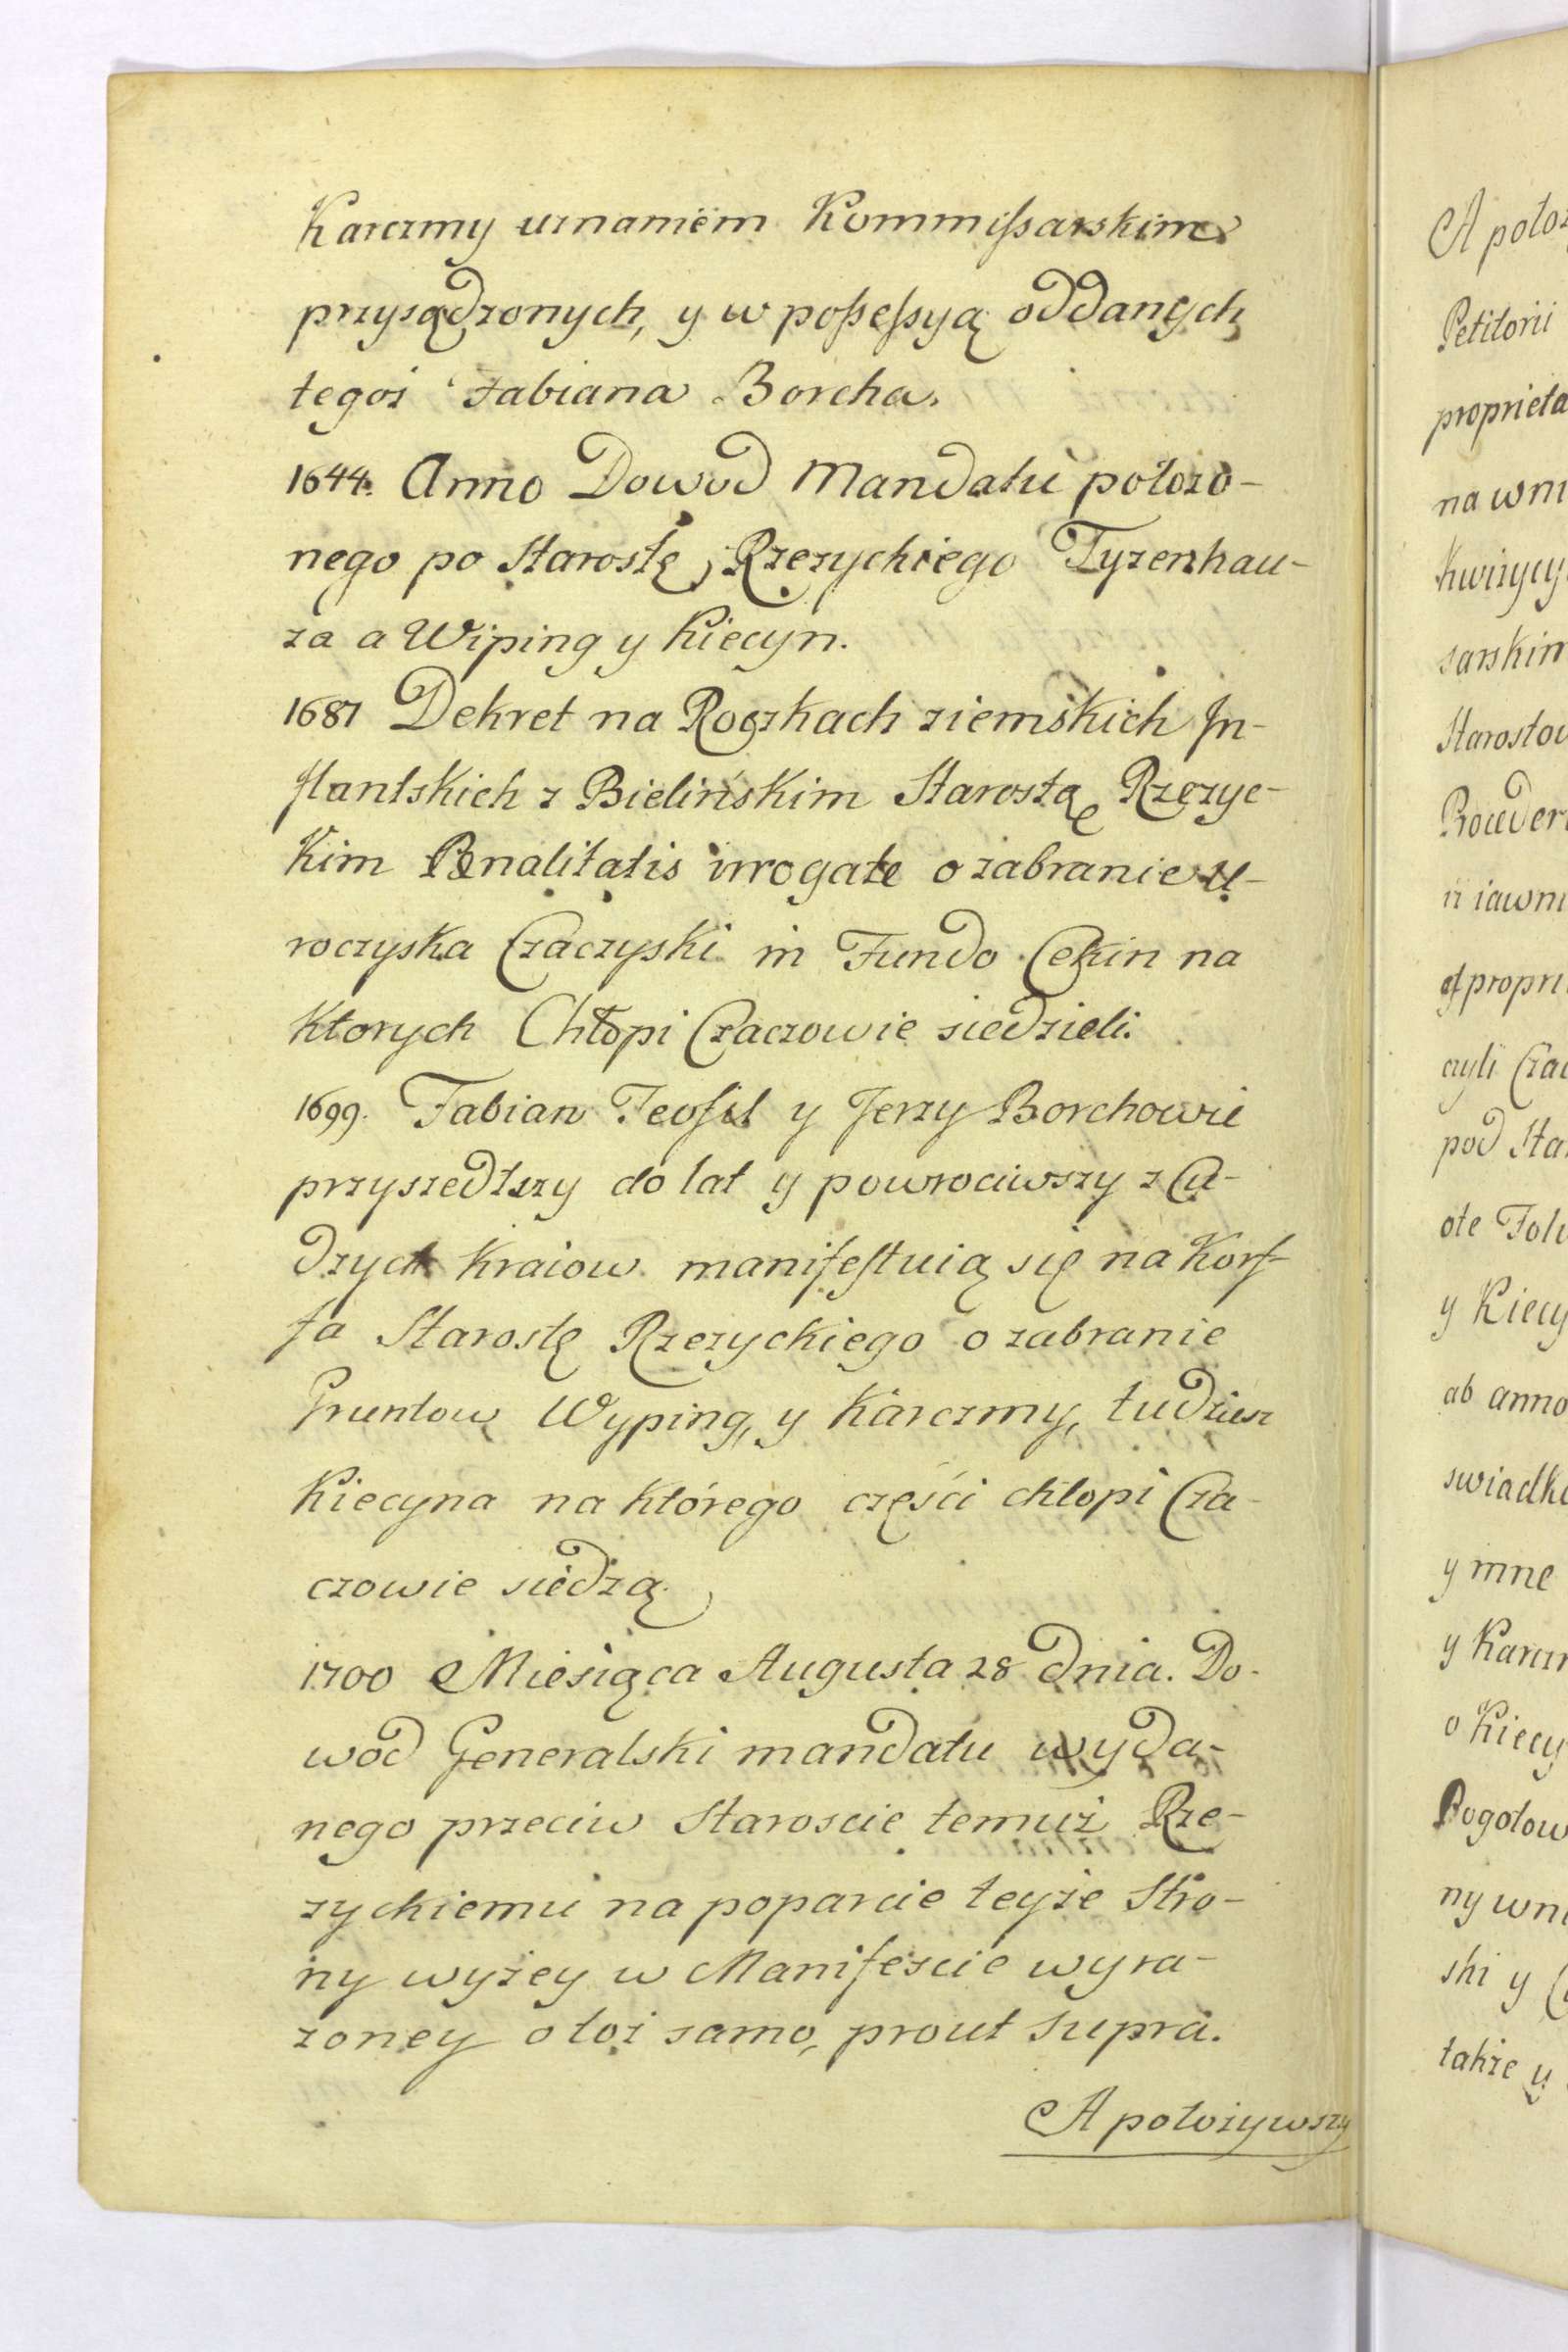 Karczmy uznaniem Kommissarskim
przysądzonych, y w possessyą oddanych
tegoż Fabiana Borcha.
1644. Anno Dowod Mandatu położo-
nego po Starostę Rzezyckiego Tyzenhau-
za a Wiping y Kiecyn.
1687 Dekret na Roczkach ziemskich In-
flantskich z Bielińskim Starostą Rzezyc-
kim Pœnalitatis irrogatæ o zabranie U-
roczyska Czaczyski in Fundo Cekin na
ktorych Chłopi Czaczowie siedzieli.
1699. Fabian Teofil y Jerzy Borchowie
przyszedłszy do lat y powrociwszy z Cu-
dzych kraiow manifestuią się na Korf-
fa Starostę Rzezyckiego o zabranie
Gruntow Wyping, y Karczmy, tudziesz
Kiecyna na którego części chłopi Cza-
czowie siedzą.
1700 Miesiąca Augusta 28 Dnia. Do-
wod Generalski mandatu wyda-
nego przeciw Staroscie temuż Rze-
zyckiemu na poparcie teyże Stro-
ny wyżey w Manifescie wyra-
żoney o toż samo, prout supra.
A położywszy
A położ
Petitorii
proprieta
na wni
kwizycy
sarskim
Starostow
Prowder
ii iawni
et propri
czyli Czac
pod Sta
ote Folw
y Kiecy
ab anno
swiadk
y inne
y Karcz
o Kiecy
Pogotow
ny wni
ski y
także y